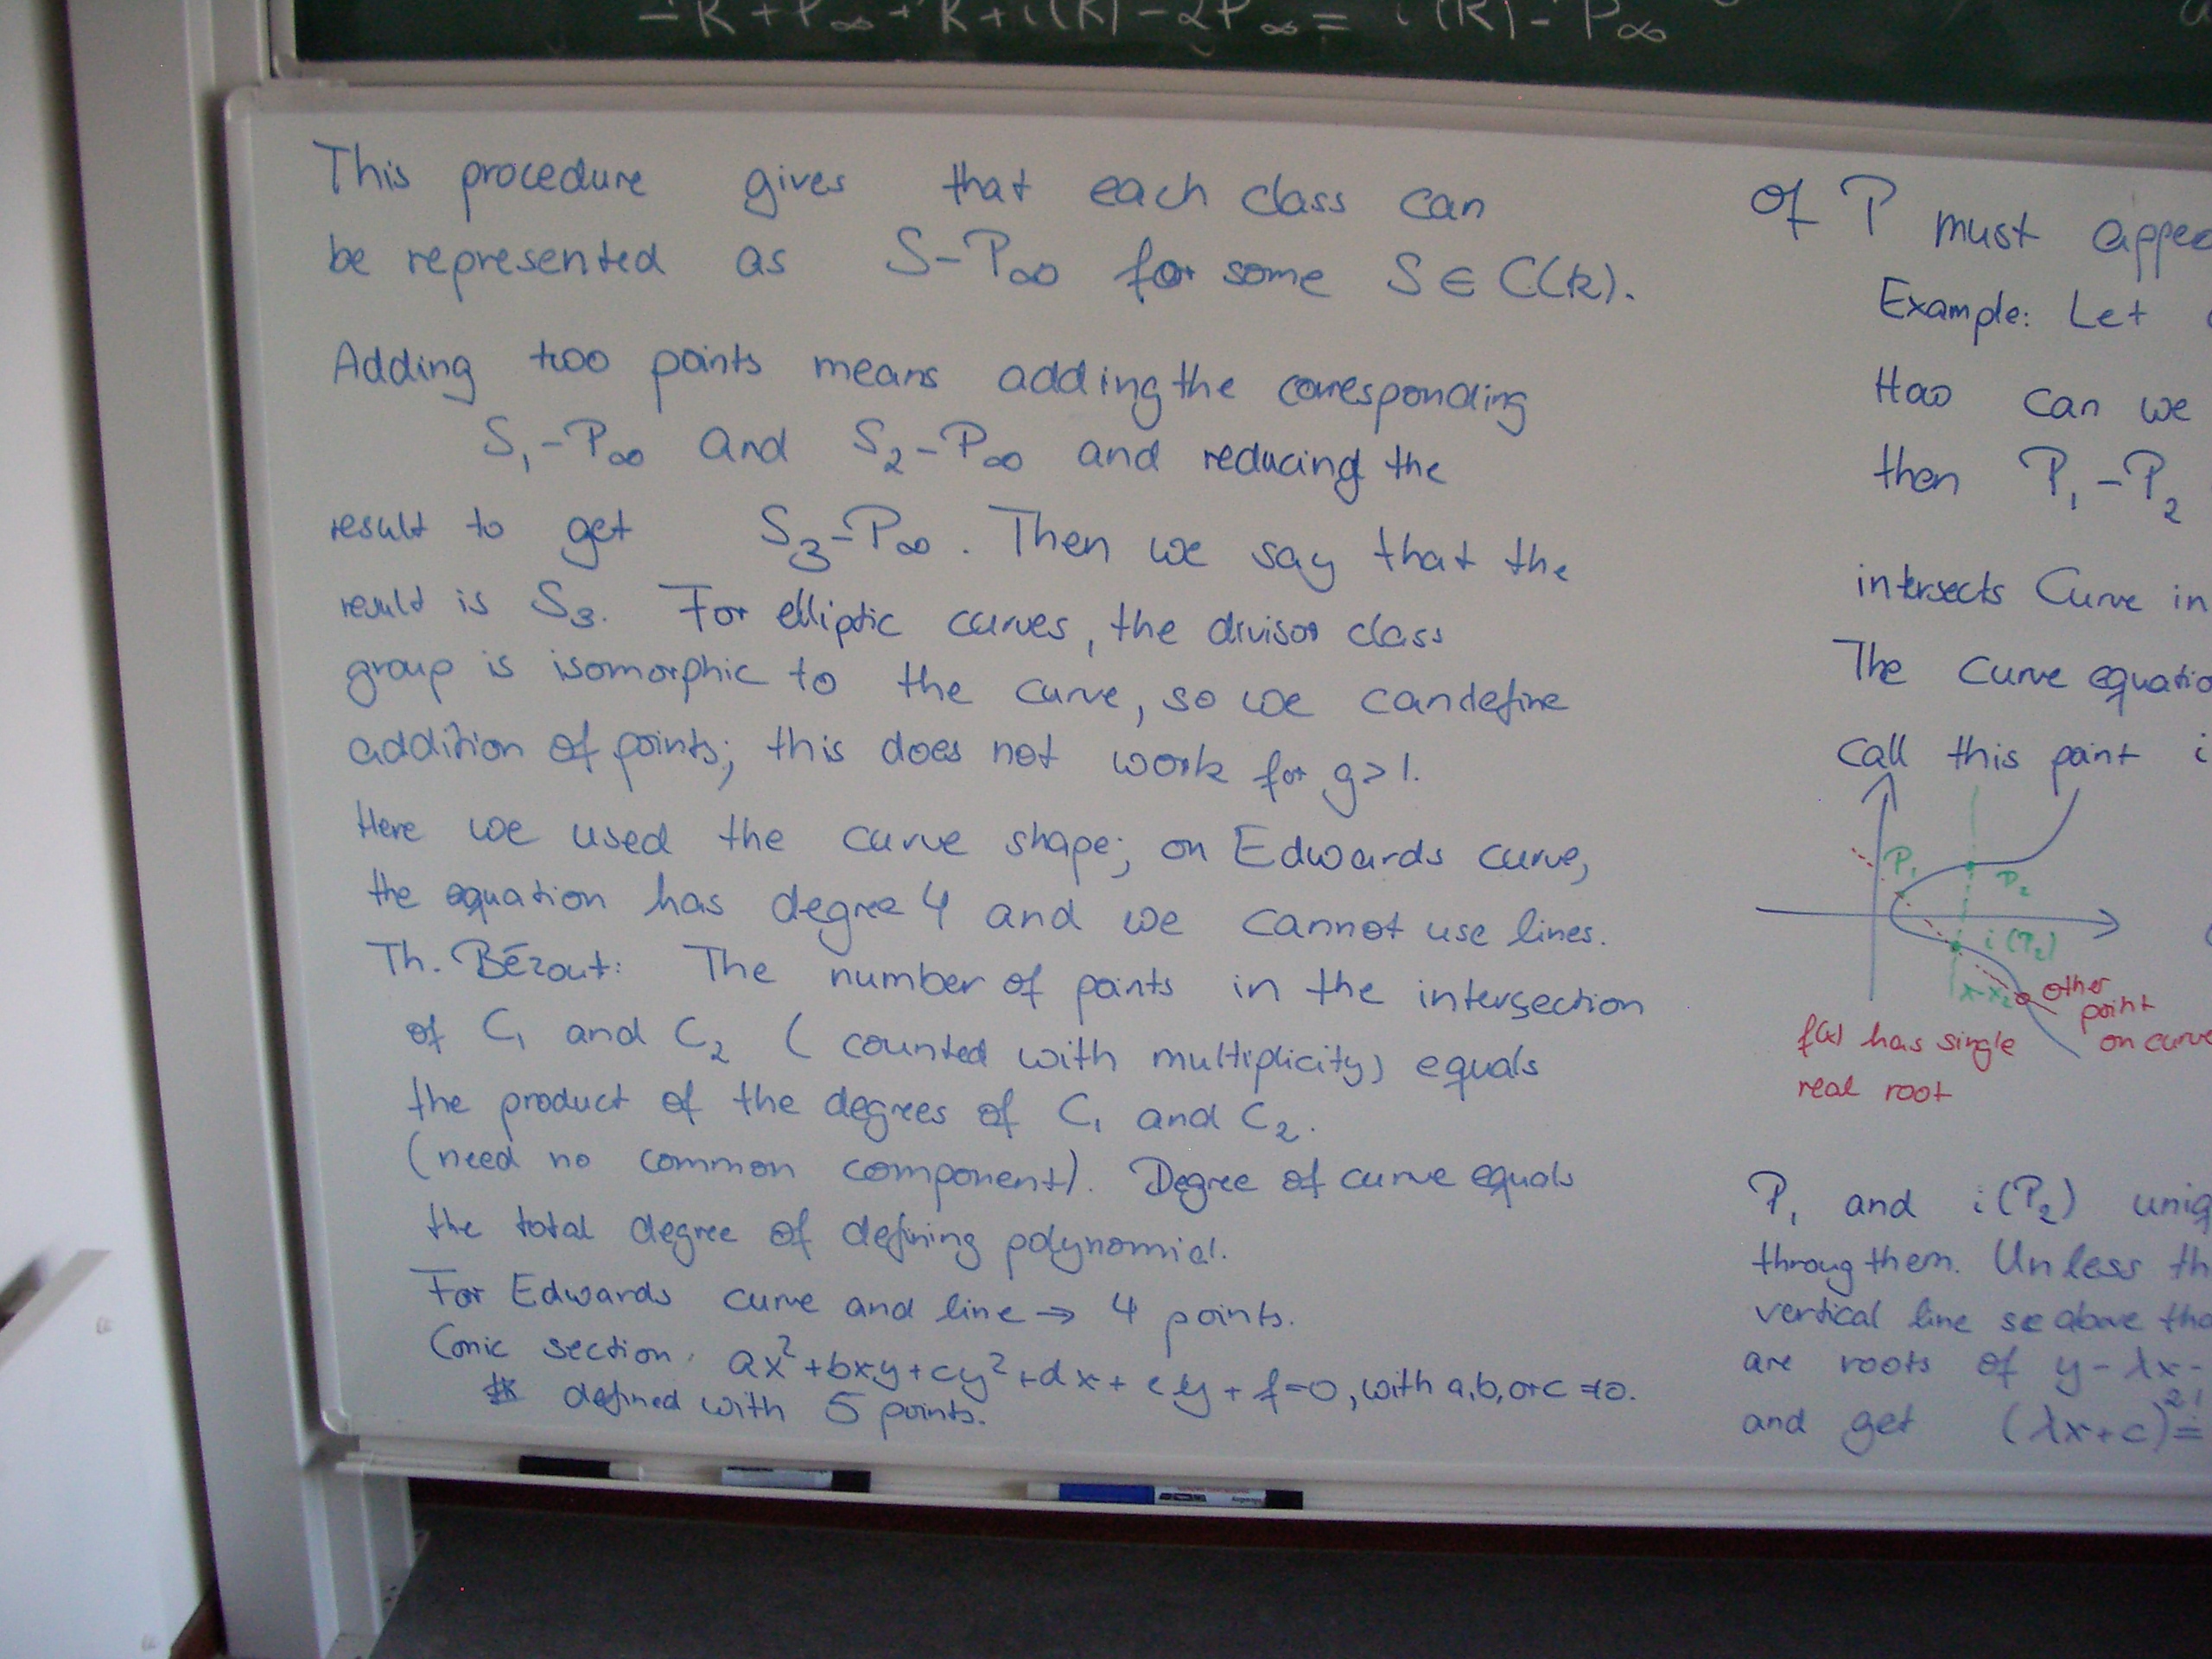 -R + P∞ + R + i(R) - 2P∞ = i(R) - P∞
This procedure gives that each class can
be represented as S-P∞ for some S ∈ C(k).
Adding two points means adding the corresponding
S₁-P∞ and S₂-P∞ and reducing the
result to get S₃-P∞. Then we say that the
result is S₃. For elliptic curves, the divisor class
group is isomorphic to the curve, so we can define
addition of points; this does not work for g>1.
Here we used the curve shape; on Edwards curve,
the equation has degree 4 and we cannot use lines.
Th. Bézout: The number of points in the intersection
of C₁ and C₂ (counted with multiplicity) equals
the product of the degrees of C₁ and C₂.
(need no common component). Degree of curve equals
the total degree of defining polynomial.
For Edwards curve and line → 4 points.
Conic section: ax²+bxy+cy²+dx+ey+f=0, with a,b, or c ≠0.
defined with 5 points.
of P must appea
Example: Let
How can we
then P₁-P₂
intersects Curve in
The curve equatio
call this point i
P₁
P₂
i(P₂)
x-x₂
other
point
on curve
f(x) has single
real root
P₁ and i(P₂) uniq
throug them. Unless th
vertical line se above tha
are roots of y-λx-
and get (λx+c)²=